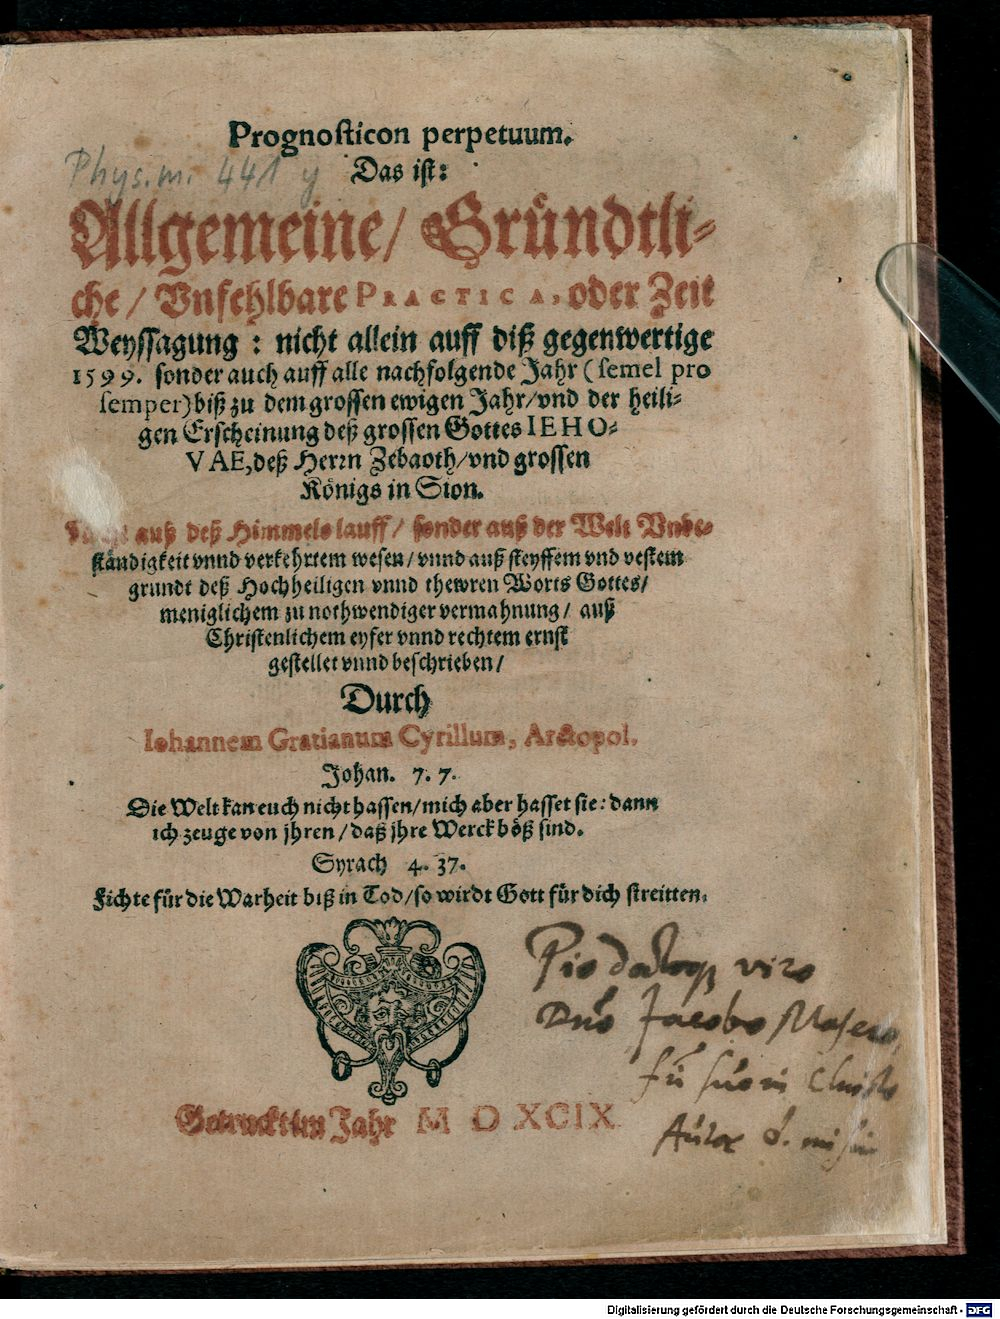 Prognosticon perpetuum.
Phys. m. 441 y
Das ist:
Allgemeine/ Gründtli-
che/ Vnfehlbare PRACTICA, oder Zeit
Weyssagung : nicht allein auff diß gegenwertige
1599. sonder auch auff alle nachfolgende Jahr (semel pro
semper) biß zu dem grossen ewigen Jahr/ vnd der heili-
gen Erscheinung deß grossen Gottes IEHO-
VAE, deß Herrn Zebaoth/ vnd grossen
Königs in Sion.
auß deß Himmels lauff/ sonder auß der Welt Vnbe-
ständigkeit vnnd verkehrtem wesen/ vnnd auß steyffem vnd vestem
grundt deß Hochheiligen vnnd thewren Worts Gottes/
meniglichem zu nothwendiger vermahnung/ auß
Christenlichem eyfer vnnd rechtem ernst
gestellet vnnd beschrieben/
Durch
Iohannem Gratianum Cyrillum, Arctopol.
Johan. 7. 7.
Die Welt kan euch nicht hassen/ mich aber hasset sie: dann
ich zeuge von jhren/ daß jhre Werck böß sind.
Syrach 4. 37.
Fichte für die Warheit biß in Tod/ so wirdt Gott für dich streitten.
Pio doctoq; viro
Dno Jacobo
Christo
Autor d.
Getruckt im Jahr M D XCIX
Digitalisierung gefördert durch die Deutsche Forschungsgemeinschaft - DFG